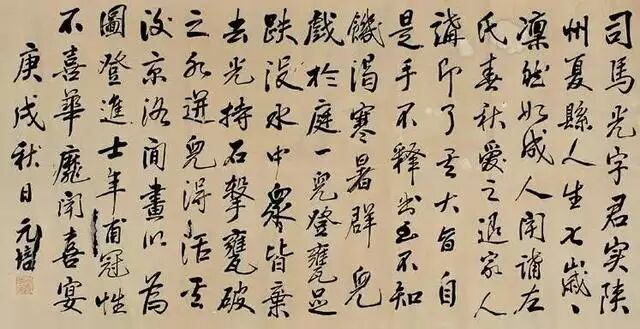 司馬光字君实陕
州夏縣人生七歲、
凛然如成人聞誦左
氏春秋爱之退家人
講即了其大旨自
是手不釋书至不知
饑渴寒暑群兒
戲於庭一兒登甕足
跌没水中衆皆棄
去光持石擊甕破
之水迸兒得活其
後京洛間畫以為
圖登進士年甫冠性
不喜華靡聞喜宴
庚戌秋日元